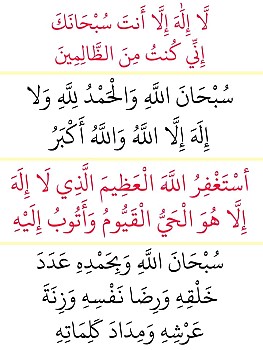 لَّا إِلَٰهَ إِلَّا أَنتَ سُبْحَانَكَ
إِنِّي كُنتُ مِنَ الظَّالِمِينَ
سُبْحَانَ اللَّهِ وَالْحَمْدُ لِلَّهِ وَلا
إِلَهَ إِلَّا اللَّهُ وَاللَّهُ أَكْبَرُ
أَسْتَغْفِرُ اللَّهَ الْعَظِيمَ الَّذِي لَا إِلَهَ
إِلَّا هُوَ الْحَيُّ الْقَيُّومُ وَأَتُوبُ إِلَيْهِ
سُبْحَانَ اللَّهِ وَبِحَمْدِهِ عَدَدَ
خَلْقِهِ وَرِضَا نَفْسِهِ وَزِنَةَ
عَرْشِهِ وَمِدَادَ كَلِمَاتِهِ